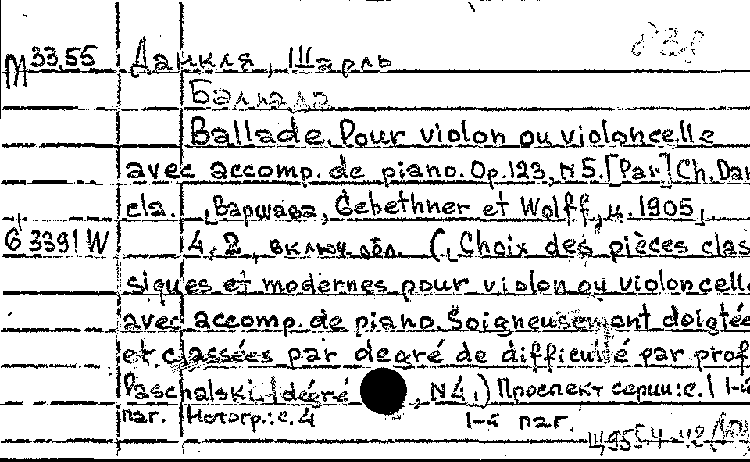 М 33,55 Данкля, Шарль
Баллада
Ballade. Pour violon ou violoncelle
avec accomp. de piano. Op. 123, N 5. [Par] Ch. Dan
cla. Варшава, Gebethner et Wolff, ц. 1905,
G 3391 W 4, 2, включ. обл. (Choix des pièces clas
siques et modernes pour violon ou violoncelle
avec accomp. de piano. Soigneusement doigtées
et classées par degré de difficulté par prof
Paschalski. I degré , N 4.) Проспект серии: с. 1 1-й
паг. Нотогр.: с. 4 1-й паг.